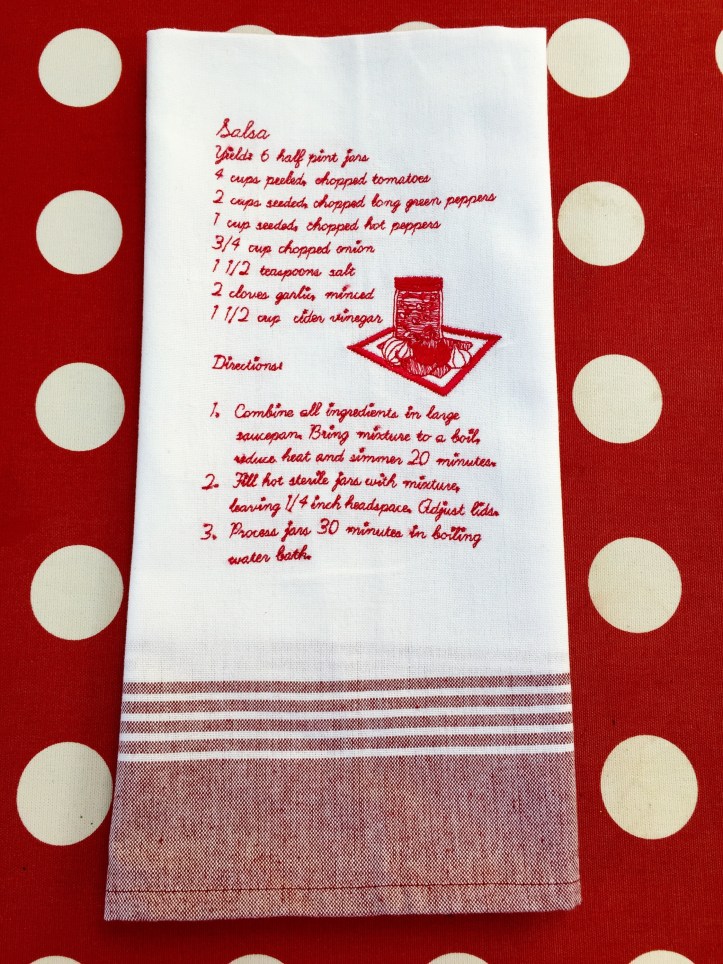 Salsa
Yield: 6 half pint jars
4 cups peeled, chopped tomatoes
2 cups seeded, chopped long green peppers
1 cup seeded, chopped hot peppers
3/4 cup chopped onion
1 1/2 teaspoons salt
2 cloves garlic, minced
1 1/2 cup cider vinegar
Directions:
1. Combine all ingredients in large
saucepan. Bring mixture to a boil,
reduce heat and simmer 20 minutes.
2. Fill hot sterile jars with mixture,
leaving 1/4 inch headspace. Adjust lids.
3. Process jars 30 minutes in boiling
water bath.